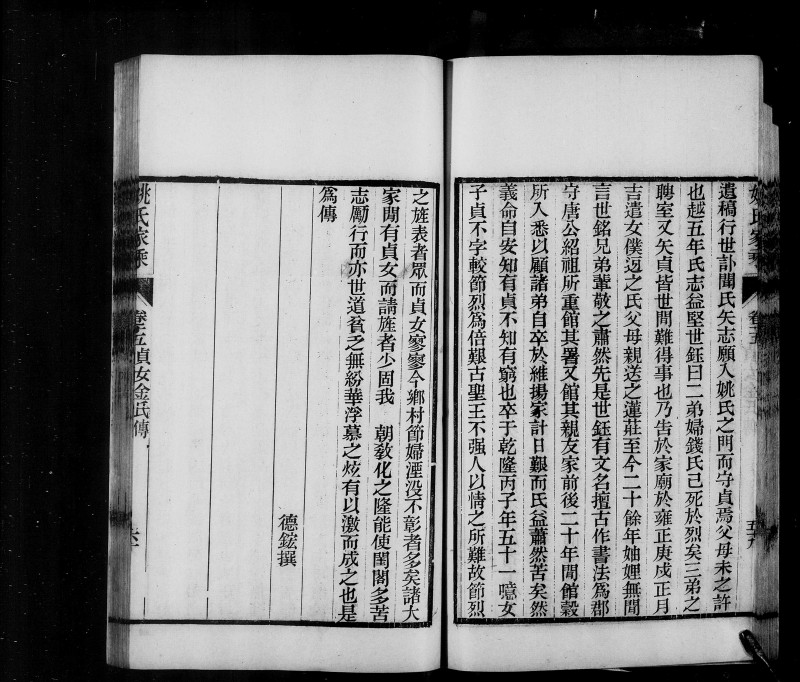 遺稿行世訃聞氏矢志願入姚氏之門而守貞焉父母未之許
也越五年氏志益堅世鈺曰二弟婦錢氏已死於烈矣三弟之
聘室又矢貞皆世間難得事也乃告於家廟於雍正庚戍正月
吉遣女僕迓之氏父母親送之蓮莊至今二十餘年妯娌無間
言世銘兄弟輩敬之肅然先是世鈺有文名擅古作書法爲郡
守唐公紹祖所重館其署又館其親友家前後二十年間館穀
所入悉以顧諸弟自卒於維揚家計日艱而氏益蕭然苦矣然
義命自安知有貞不知有窮也卒于乾隆丙子年五十一噫女
子貞不字較節烈爲倍艱古聖王不强人以情之所難故節烈
之旌表者眾而貞女寥寥今鄉村節婦湮没不彰者多矣諸大
家閒有貞女而請旌者少固我　朝敎化之隆能使閨閣多苦
志勵行而亦世道貧乏無紛華浮慕之炫有以激而成之也是
爲傳
德鋐撰
姚氏家乘
卷十五貞女金氏傳